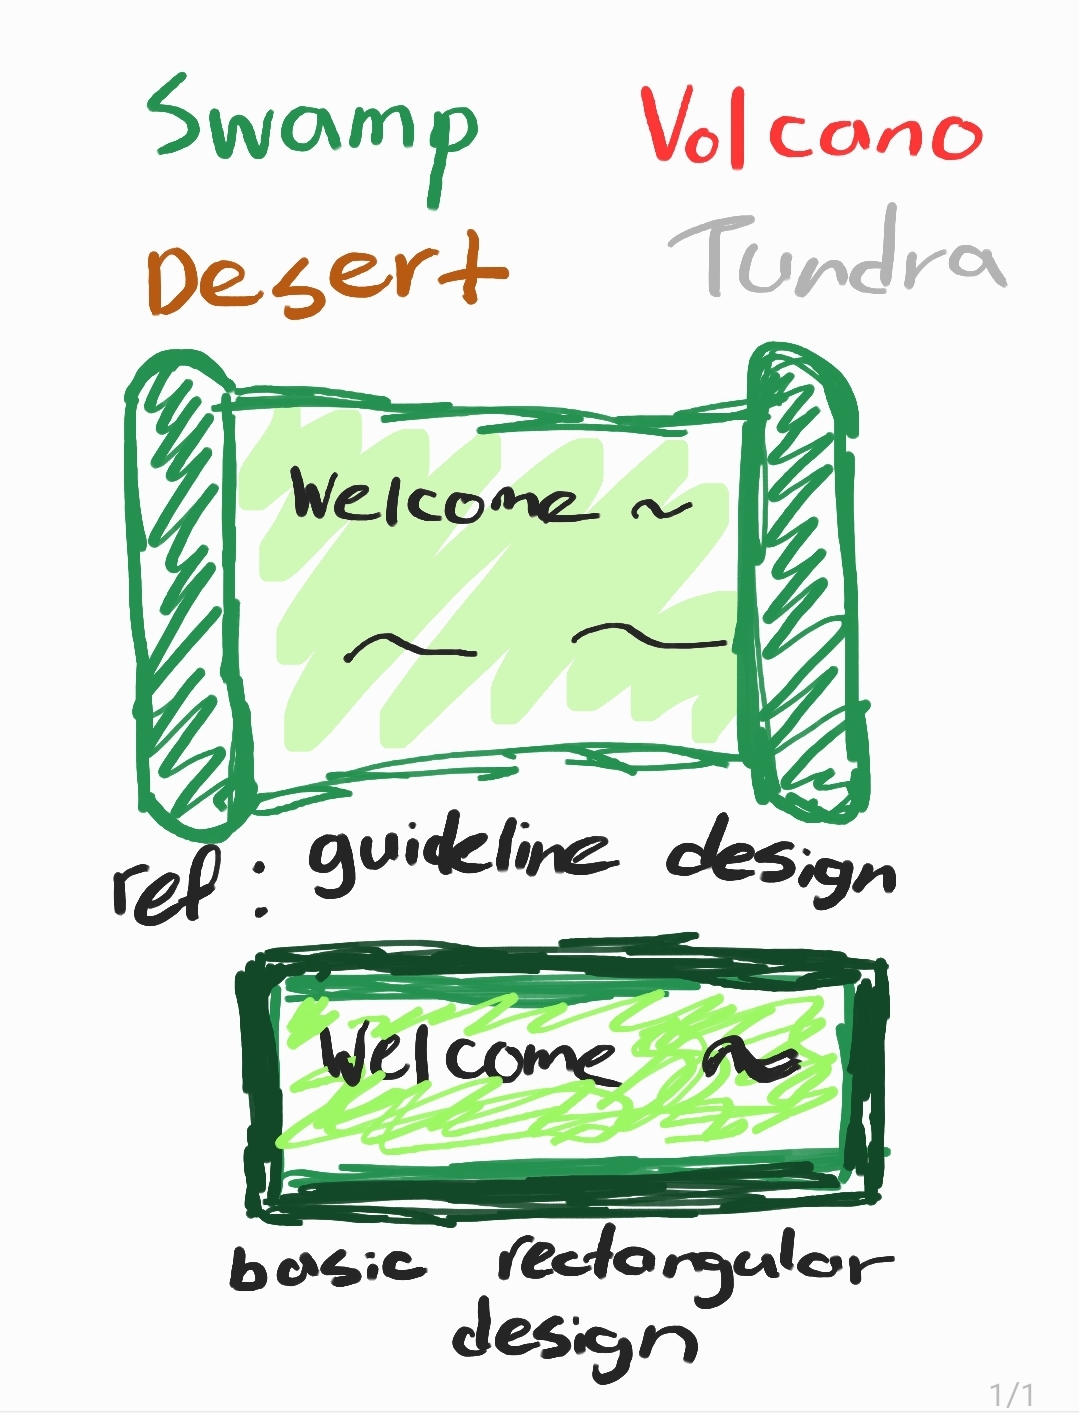 Swamp Volcano
Desert Tundra
Welcome ~
ref: guideline design
Welcome ~
basic rectangular
design
1/1